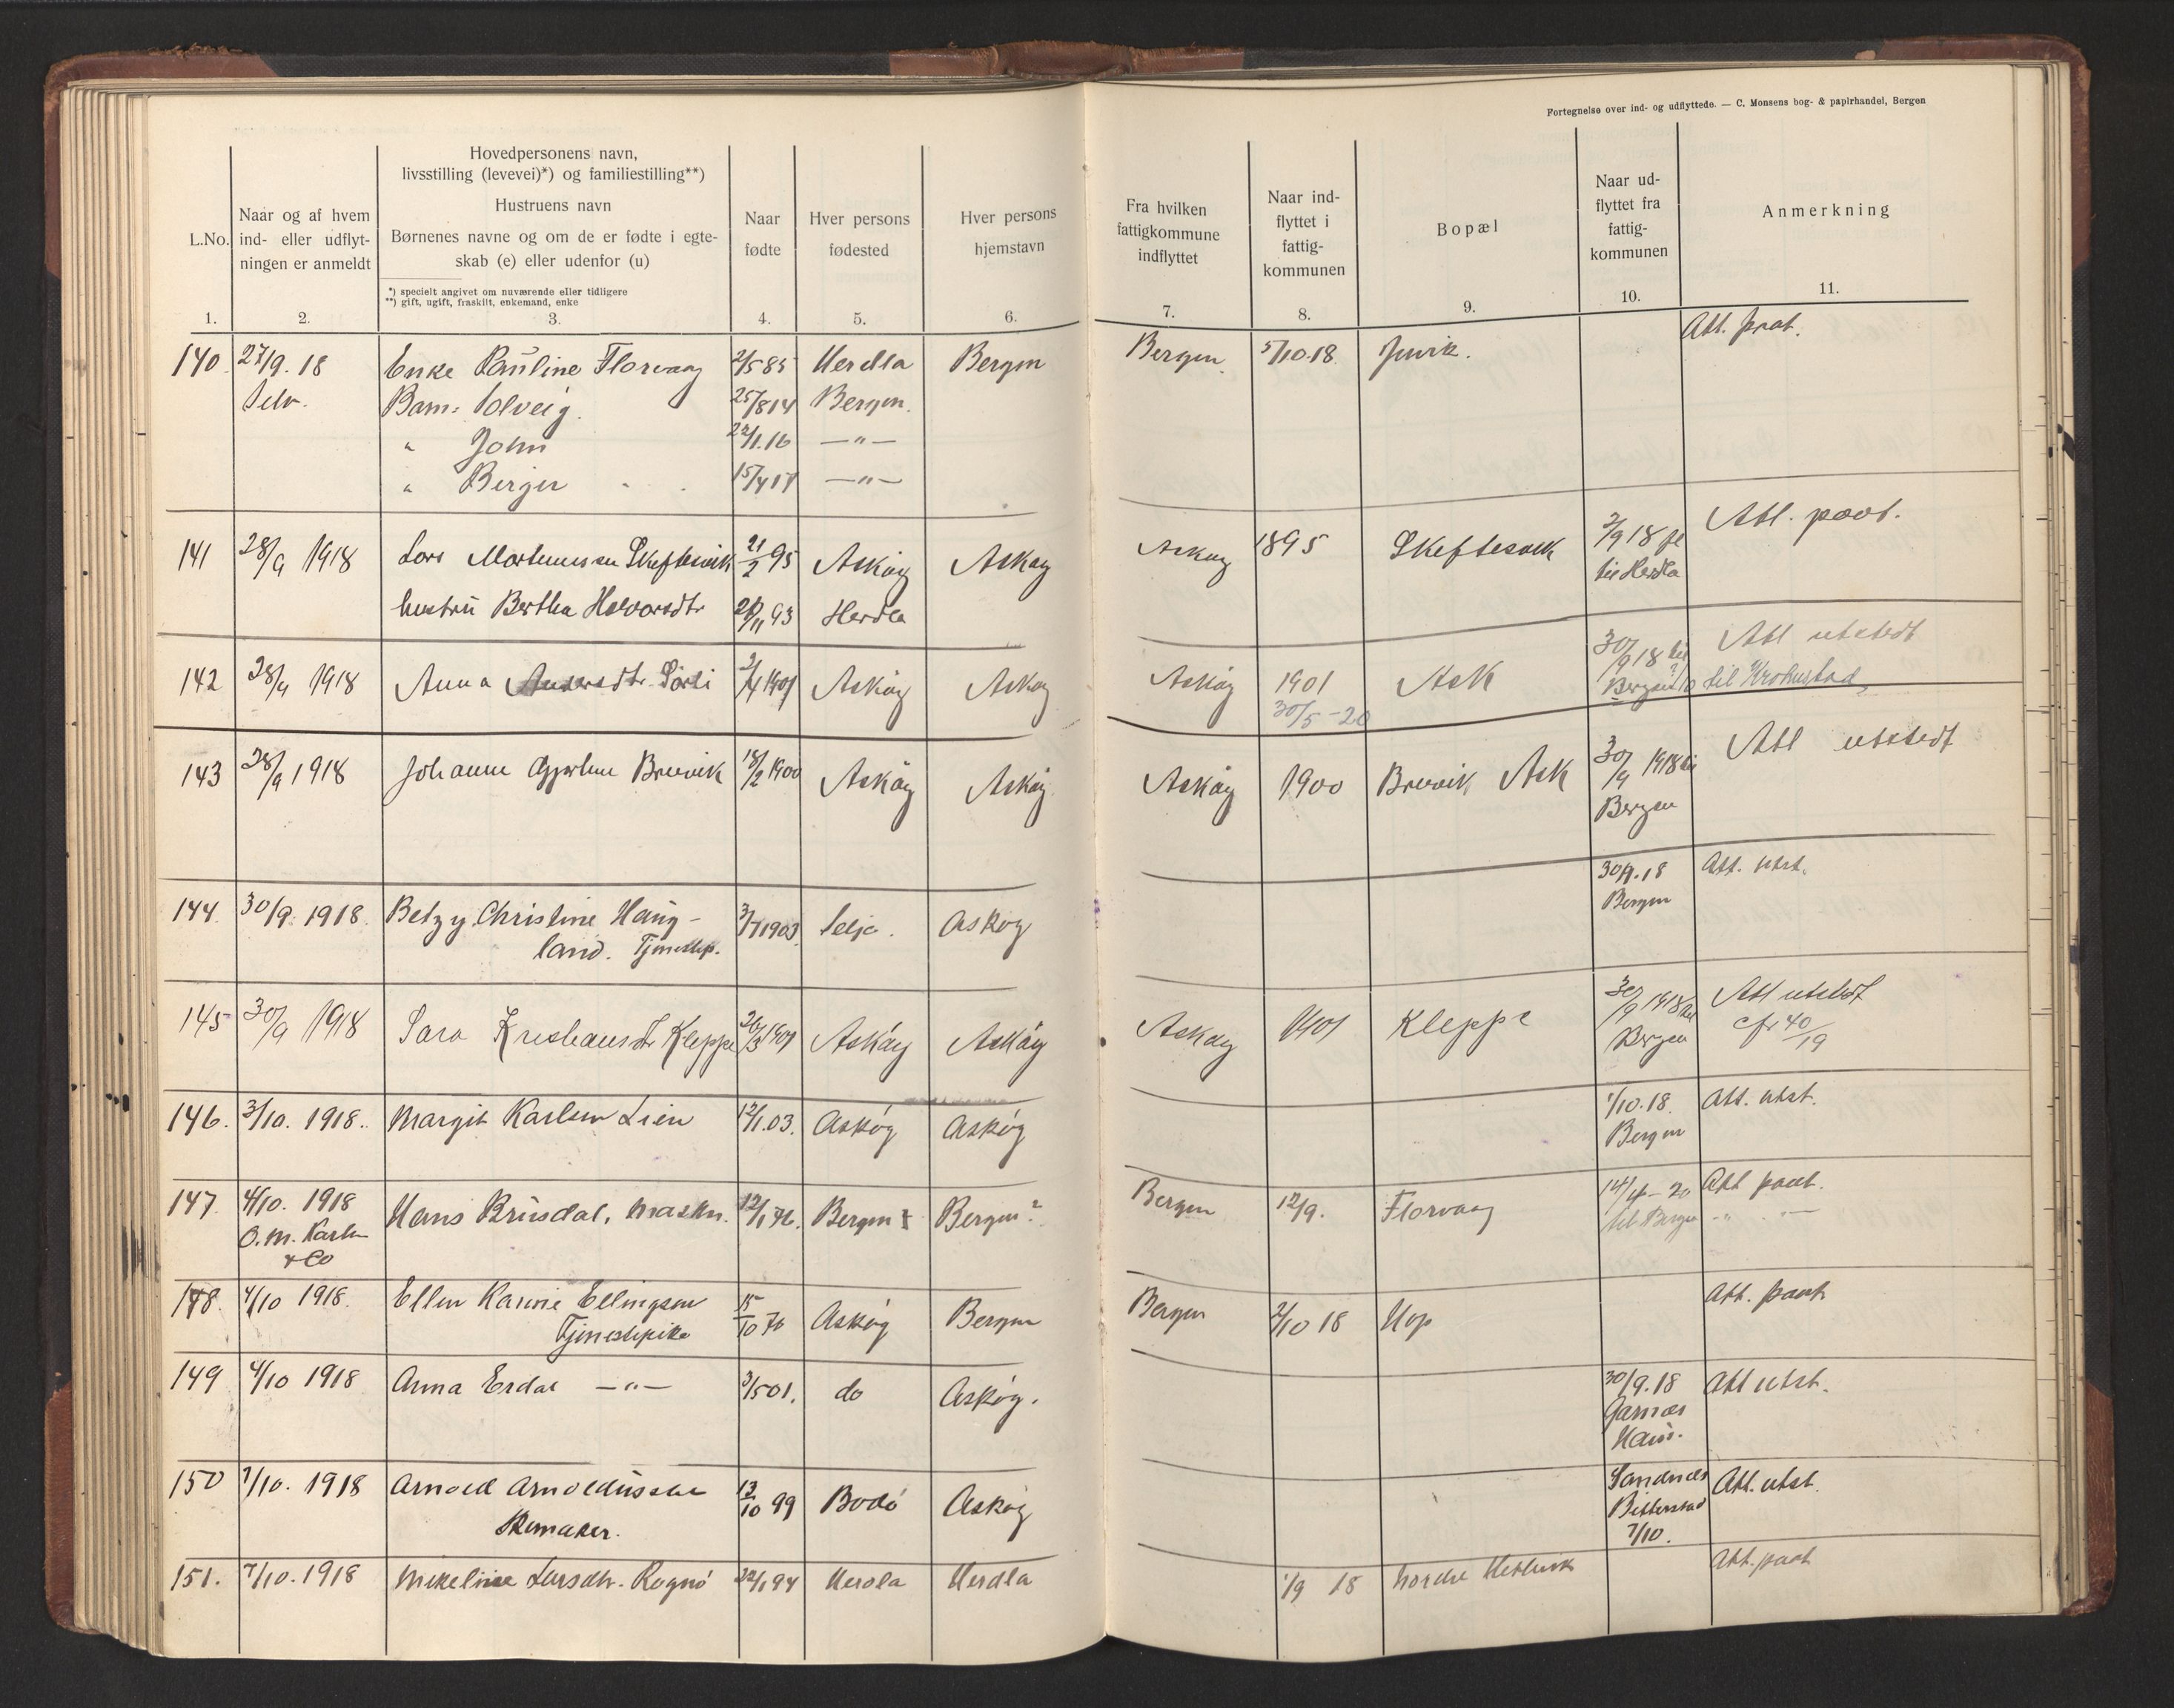 Fortegnelse over ind- og udflyttede. — C. Monsens bog- & papirhandel, Bergen
L.No.
1.
Naar og af hvem
ind- eller udflyt-
ningen er anmeldt
2.
Hovedpersonens navn,
livsstilling (levevei)*) og familiestilling**)
Hustruens navn
Børnenes navne og om de er fødte i egte-
skab (e) eller udenfor (u)
*) specielt angivet om nuværende eller tidligere
**) gift, ugift, fraskilt, enkemand, enke
3.
Naar
fødte
4.
Hver persons
fødested
5.
Hver persons
hjemstavn
6.
Fra hvilken
fattigkommune
indflyttet
7.
Naar ind-
flyttet i
fattig-
kommunen
8.
Bopæl
9.
Naar ud-
flyttet fra
fattig-
kommunen
10.
Anmerkning
11.
140 27/9. 18 Enke Pauline Florvaag 2/5 85 Herdla Bergen Bergen 5/10.18 Juvik. Att. prot.
Selv. Barn: Solveig. 25/8 14 Bergen.
" John 22/1.16 —"—
" Berger 15/4 17 —"—
141 28/9 1918 Lars Mortenussen Skeftesvik 21/2 95 Askøy Askøy Askøy 1895 Skeftesvik 2/9 18
til Herdla
hustru Bertha Halvorsdtr 93 Herdla
142 28/9 1918 Anna Andersdtr. 1901 Askøy Askøy Askøy 1901 Ask 30/9 18 til Att utstedt
30/5-20 Bergen til Krokustad
143 28/9 1918 Johanne Brevik 18/2 1900 Askøy Askøy Askøy 1900 Brevik Ask 30/9 1918 til Att utstedt
Bergen
144. 30/9. 1918. Betzy Christine Haug- 1903 Selje. Askøy 30/9.18 Att. utst.
land. Tjenestep. Bergen
145 30/9 1918 Sara Kristiansdtr Kleppe 20/3 1901 Askøy Askøy Askøy 1901 Kleppe 30/9 1918 til Att utstedt
Bergen cfr 40/19
146. 3/10. 1918. Margit Karlsen Lien 12/1.03. Askøy Askøy 1/10.18. Att. utst.
Bergen
147. 4/10. 1918 Hans Brusdal, maskn. 12/1 76. Bergen Bergen? Bergen 12/9. Florvaag 14/4-20
O.M. Karlsen til Bergen -"- —
& Co
148. 4/10 1918. Ellen Karine Ellingsen 15/10 70 Askøy Bergen Bergen 2/10 18 Hop
Tjenestepike
149 4/10 1918 Anna Erdal —"— 3/5 01. do Askøy. 30/9.18 Att utst.
Garnæs
Haus.
150 7/10. 1918 Arnold Arnoldussen 13/10 99 Bodø Askøy Sandnes Att. utst.
Skomaker. 7/10.
151. 7/10. 1918 Mikeline Larsdtr. Rognø 22/1 94 Herdla Herdla 1/9 18 nordre Hetlevik